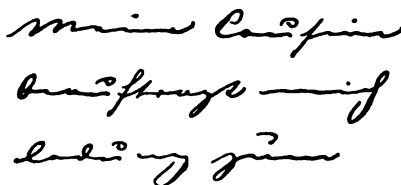 Meine Cousine
beauftragt mich
ladung zum